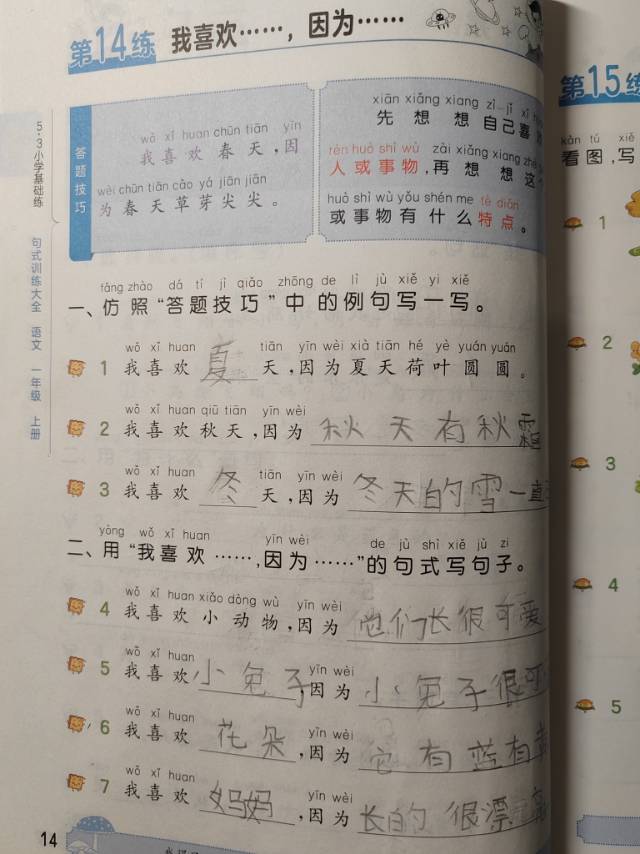 第14练 我喜欢……，因为……
5·3小学基础练 句式训练大全 语文 一年级 上册
答题技巧
wǒ xǐ huan chūn tiān yīn
我喜欢春天，因
wèi chūn tiān cǎo yá jiān jiān
为春天草芽尖尖。
xiān xiǎng xiang zì jǐ xǐ
先想想自己喜
rén huò shì wù zài xiǎng xiang zhè
人或事物，再想想这
huò shì wù yǒu shén me tè diǎn
或事物有什么特点。
fǎng zhào dá tí jì qiǎo zhōng de lì jù xiě yi xiě
一、仿照“答题技巧”中的例句写一写。
wǒ xǐ huan tiān yīn wèi xià tiān hé yè yuán yuán
1 我喜欢夏天，因为夏天荷叶圆圆。
wǒ xǐ huan qiū tiān yīn wèi
2 我喜欢秋天，因为秋天有秋霜
wǒ xǐ huan tiān yīn wèi
3 我喜欢冬天，因为冬天的雪一直
yòng wǒ xǐ huan yīn wèi de jù shì xiě jù zi
二、用“我喜欢……，因为……”的句式写句子。
wǒ xǐ huan xiǎo dòng wù yīn wèi
4 我喜欢小动物，因为他们长很可爱
wǒ xǐ huan yīn wèi
5 我喜欢小兔子，因为小兔子很可
wǒ xǐ huan yīn wèi
6 我喜欢花朵，因为它有蓝有
wǒ xǐ huan yīn wèi
7 我喜欢妈妈，因为长的很漂亮
14
第15练
kàn tú xiě
看图，写
1
2
3
4
5